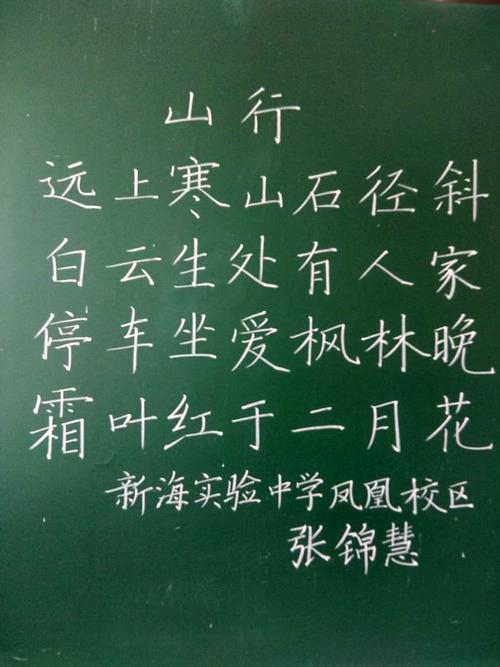 山行
远上寒山石径斜
白云生处有人家
停车坐爱枫林晚
霜叶红于二月花
新海实验中学凤凰校区
张锦慧